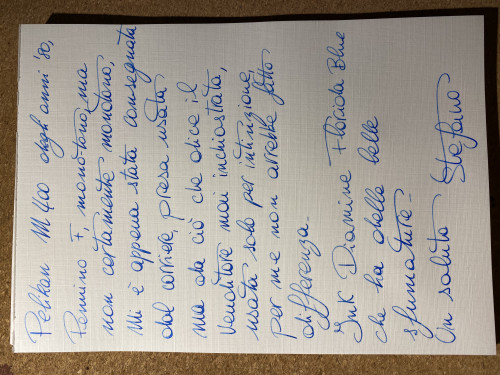 Pelikan M400 degli anni '80,
Pennino F, mono-tono, ma
non certamente monotono,
Mi è appena stata consegnata
dal corriere, presa usata
ma da ciò che dice il
Venditore mai inchiostrata,
usata solo per intinzione,
per me non avrebbe fatto
differenza-
Ink Diamine Florida Blue
che ha delle belle
sfumature-
Un saluto Stefano